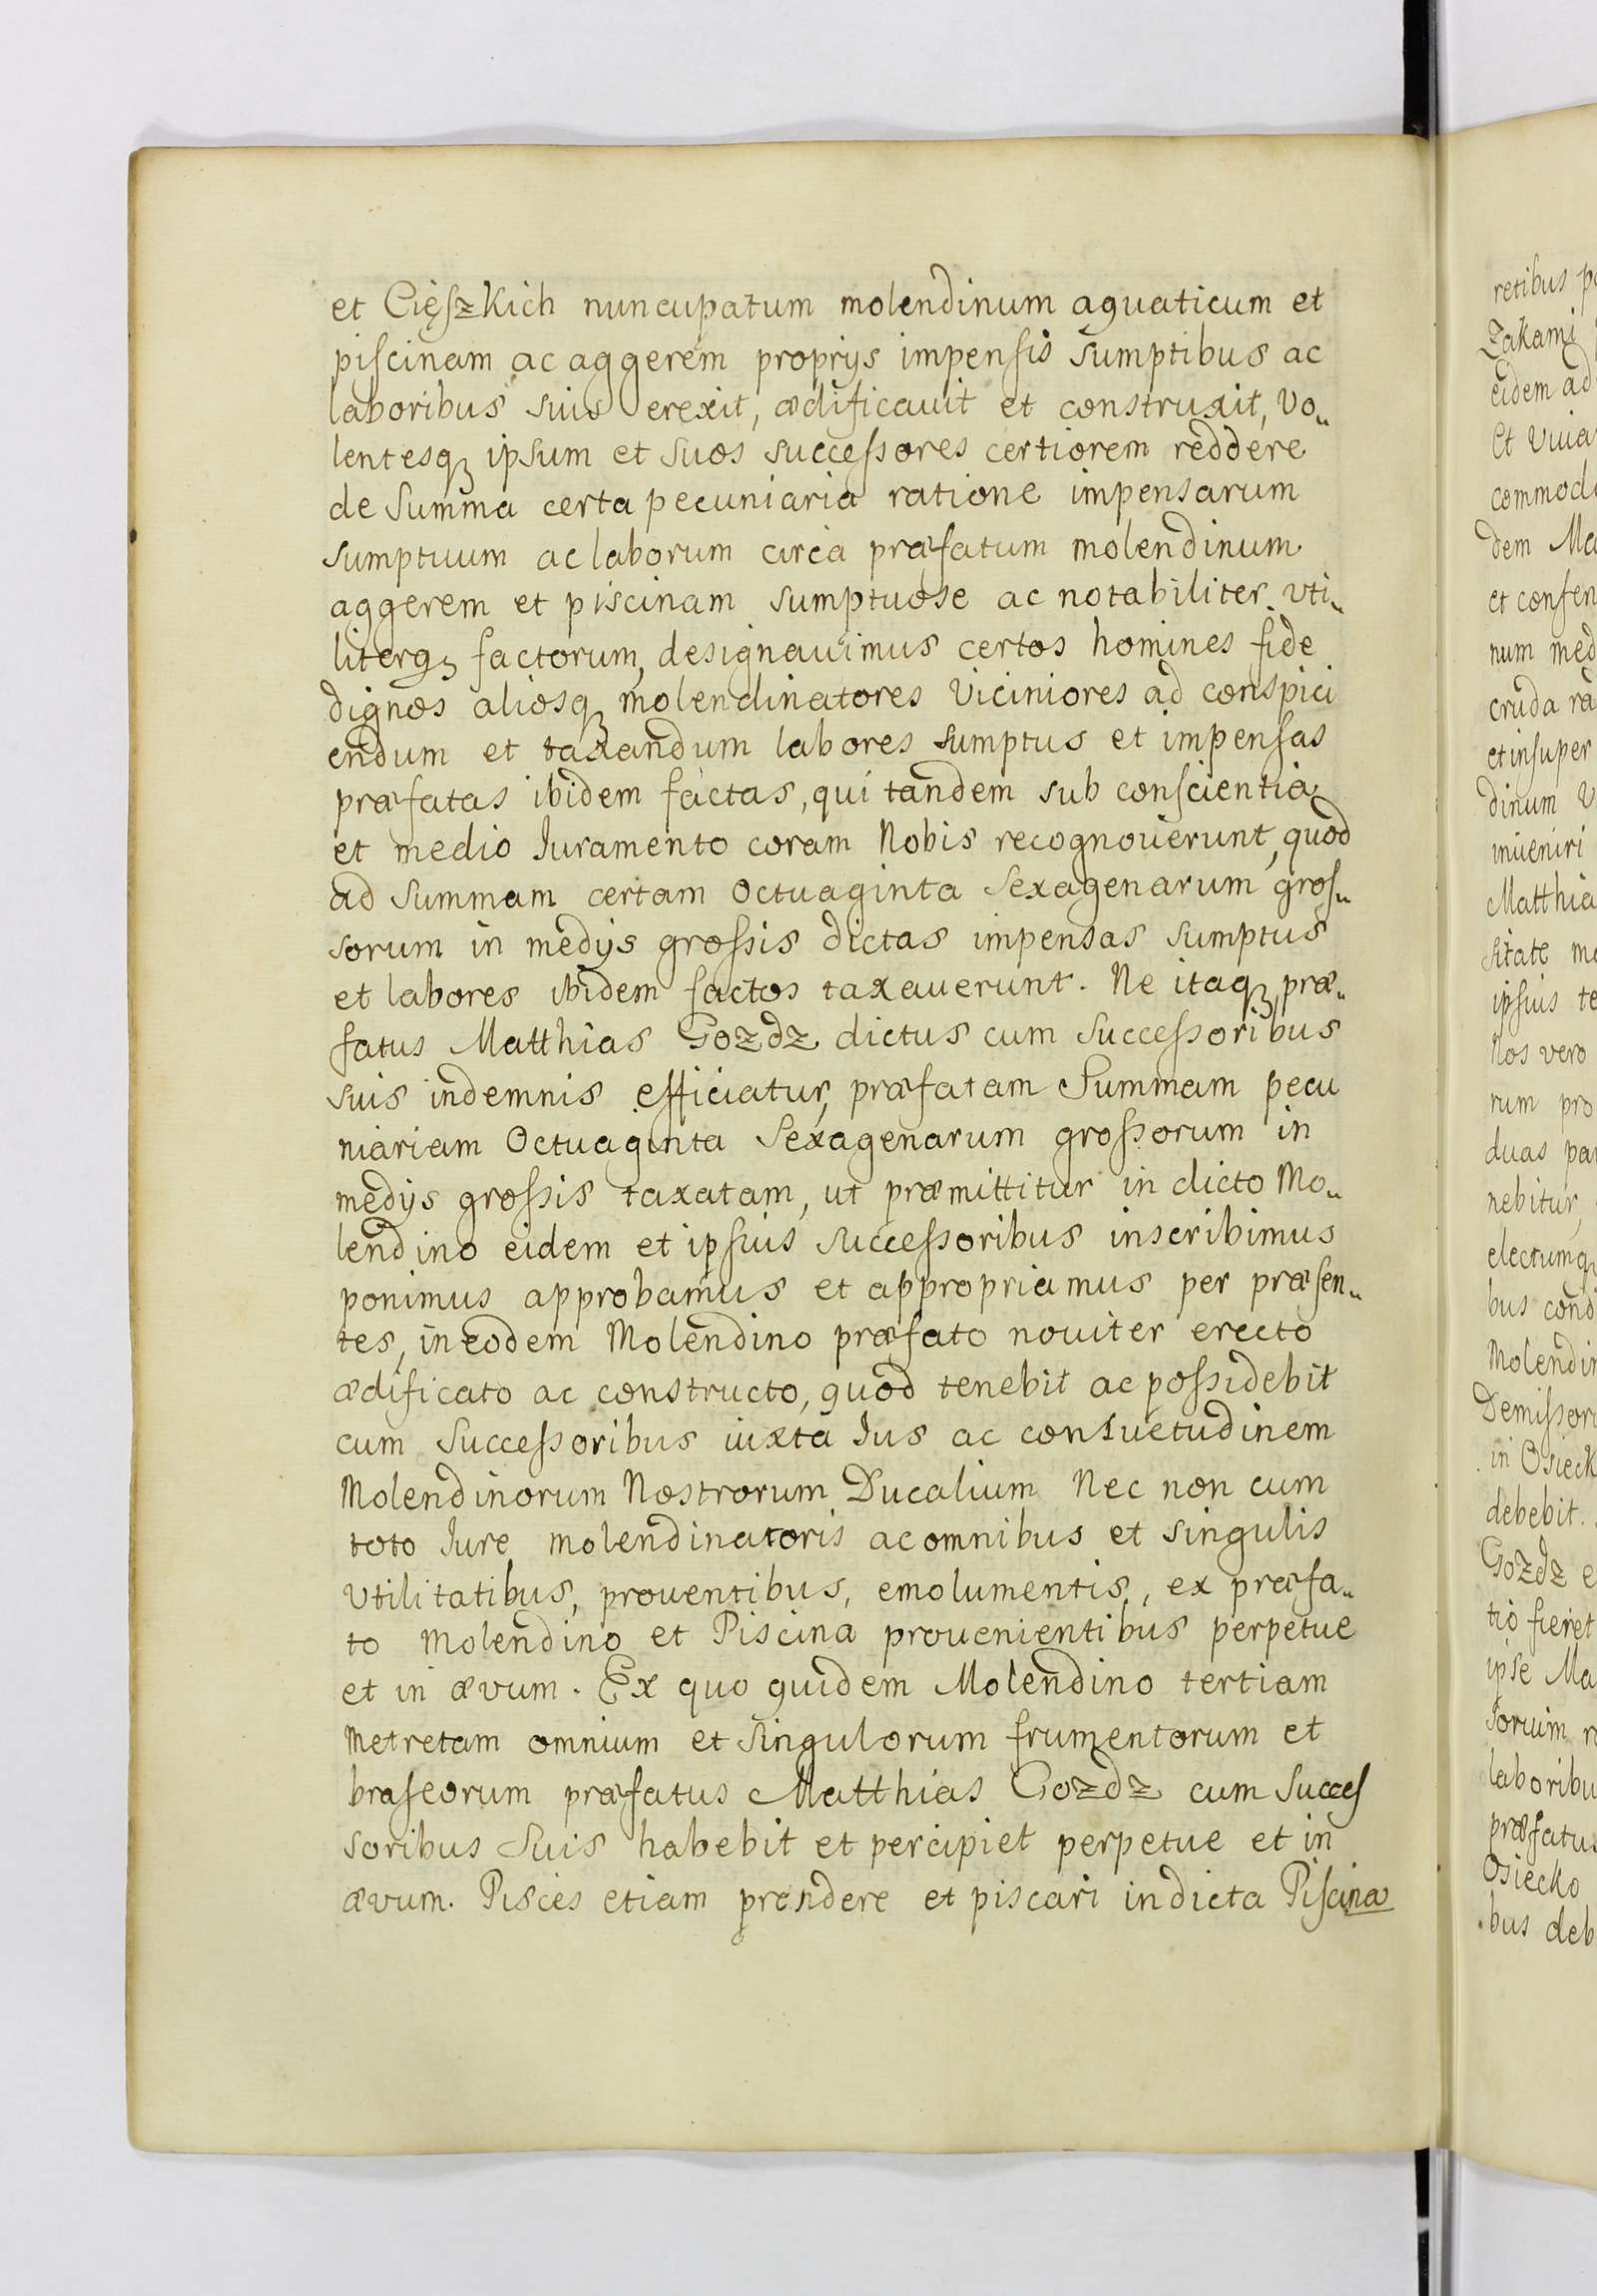 et Cięszkich nuncupatum molendinum aquaticum et
piscinam ac aggerem proprijs impensis sumptibus ac
laboribus suis erexit, ædificauit et construxit, Vo„
lentesq₃ ipsum et suos successores certiorem reddere
de summa certa pecuniaria ratione impensarum
sumptuum ac laborum circa præfatum molendinum
aggerem et piscinam sumptuose ac notabiliter vti„
literq₃ factorum, designauimus certos homines fide
dignos aliosq₃ molendinatores Viciniores ad conspici
endum et taxandum labores sumptus et impensas
præfatas ibidem factas, qui tandem sub conscientia
et medio Iuramento coram Nobis recognouerunt, quod
ad summam certam Octuaginta Sexagenarum gros„
sorum in medijs grossis dictas impensas sumptus
et labores ibidem factos taxauerunt. Ne itaq₃ præ„
fatus Matthias Gozdz dictus cum successoribus
suis indemnis efficiatur, præfatam Summam pecu
niariam Octuaginta Sexagenarum grossorum in
medijs grossis taxatam, ut præmittitur in dicto Mo„
lendino eidem et ipsius successoribus inscribimus
ponimus approbamus et appropriamus per præsen„
tes, in eodem Molendino præfato nouiter erecto
ædificato ac constructo, quod tenebit ac possidebit
cum Successoribus iuxta Ius ac consuetudinem
Molendinorum Nostrorum Ducalium Nec non cum
toto Iure molendinatoris ac omnibus et singulis
Vtilitatibus, prouentibus, emolumentis, ex præfa„
to Molendino et Piscina prouenientibus perpetue
et in ævum. Ex quo quidem Molendino tertiam
Metretam omnium et singulorum frumentorum et
braseorum præfatus Matthias Gozdz cum Succes
soribus Suis habebit et percipiet perpetue et in
ævum. Pisces etiam prendere et piscari in dicta Piscina
retibus
Zakami
eidem ad
et
commod
dem Ma
et consen
num med
cruda ra
et insuper
dinum
inueniri
Matthia
sitate
ipsius te
Nos vero
rum pro
duas par
nebitur,
electumq₃
bus cond
Molendin
Demissor
in Osieck
debebit.
Gozdz e
tio fieret
ipse Ma
soruim
laboribu
præfatus
Osiecko
bus deb